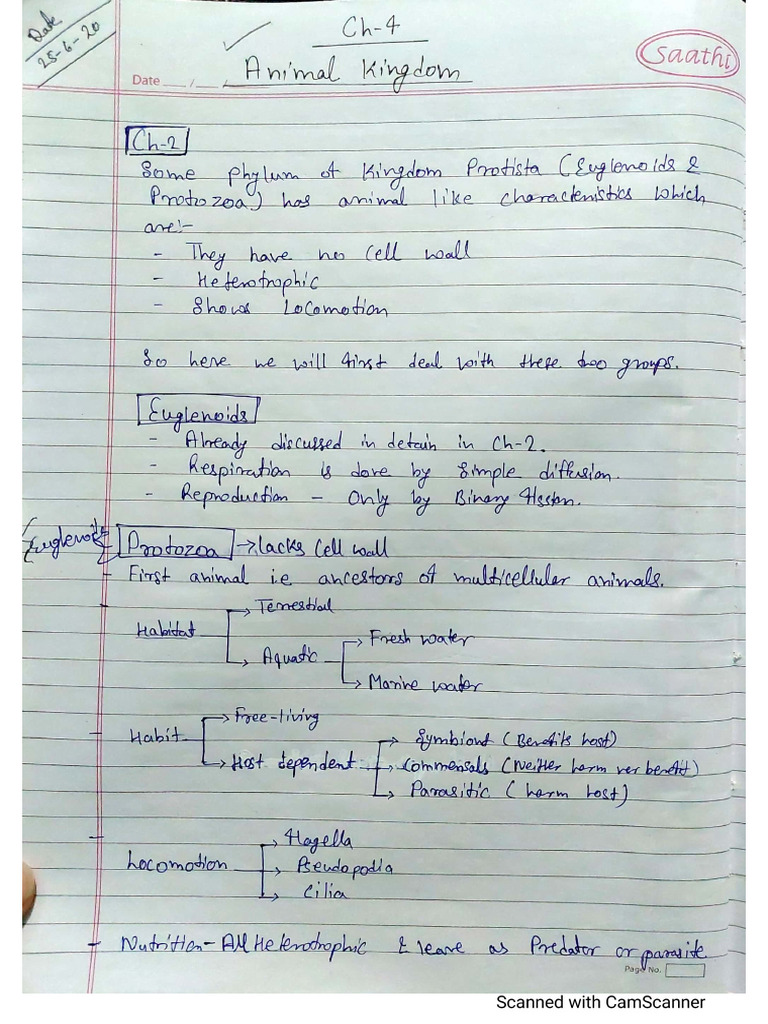 Date
25-6-20
Ch-4
Saathi
Date ___/___/
Animal Kingdom
Ch-2
Some Phylum of Kingdom Protista (Euglenoids &
Protozoa) has animal like characteristics which
are:-
- They have no Cell wall
- Heterotrophic
- Shows Locomotion
So here we will first deal with these two groups.
Euglenoids
- Already discussed in detain in Ch-2.
- Respiration is done by Simple diffusion.
- Reproduction - Only by Binary fission.
Euglenoids
Protozoa → lacks Cell wall
- First animal i.e ancestors of multicellular animals.
- Habitat → Terrestial
→ Aquatic → Fresh water
→ Marine water
- Habit → Free-living
→ Host dependent → Symbiont (Benefits host)
→ Commensals (Neither harm ner benefit)
→ Parasitic (harm host)
- Locomotion → Flagella
→ Pseudopodia
→ Cilia
- Nutrition - All Heterotrophic & leave as Predator or parasite
Page No.
Scanned with CamScanner